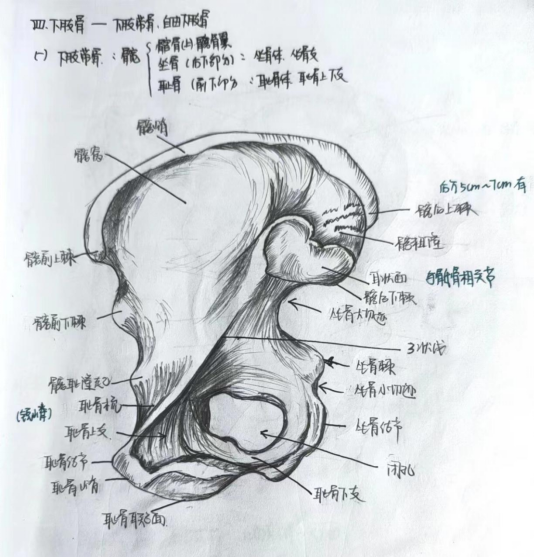 四.下肢骨 — 下肢带骨.自由下肢骨
(一) 下肢带骨:髋 髂骨(上) 髂骨翼
坐骨(后下部分):坐骨体 坐骨支
耻骨(前下部分):耻骨体 耻骨上下支
髂嵴
髂窝
后方5cm~7cm有
髂后上棘
髂粗隆
髂前上棘
耳状面 与骶骨相关节
髂后下棘
坐骨大切迹
髂前下棘
弓状线
坐骨棘
髂耻隆起
坐骨小切迹
耻骨梳
耻骨上支
坐骨结节
耻骨结节
闭孔
耻骨下支
耻骨联合面